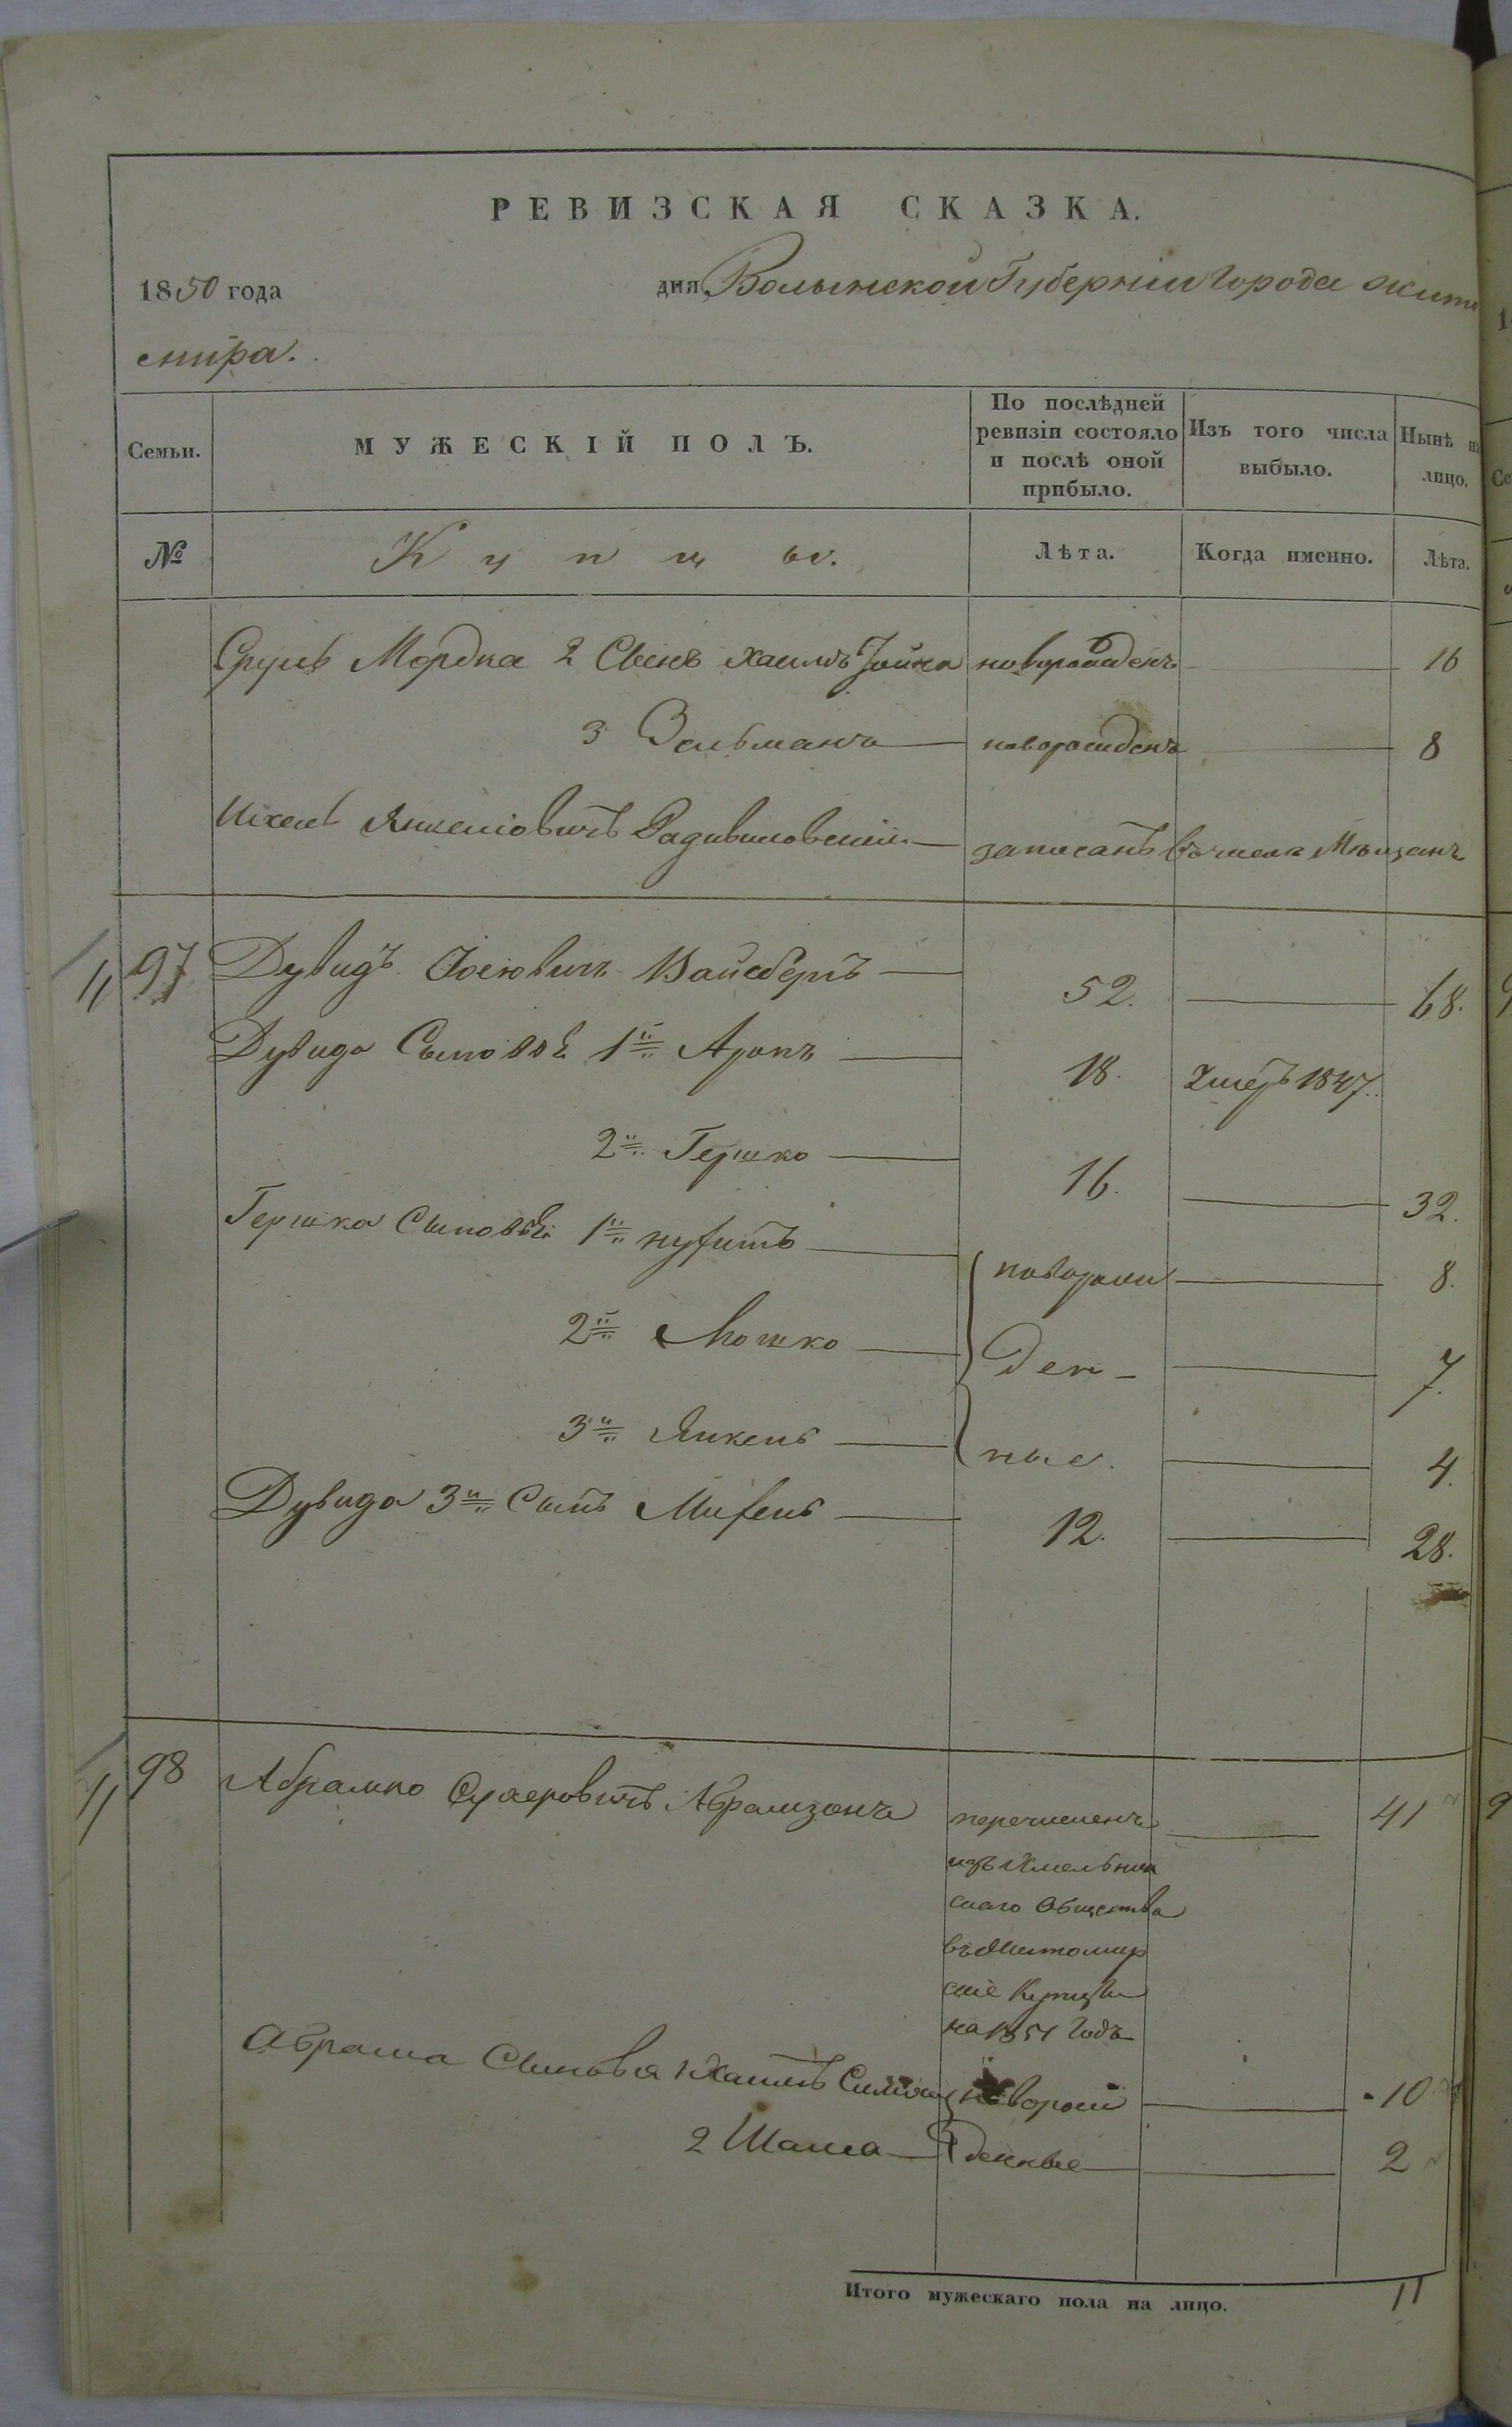 РЕВИЗСКАЯ СКАЗКА.
1850 года дня Волынской Губерніи Города Жито
мира.
Семьи. МУЖЕСКІЙ ПОЛЪ. По послѣдней ревизіи состояло и послѣ оной прибыло. Изъ того числа выбыло. Нынѣ на лицо.
№ Купцы. Лѣта. Когда именно. Лѣта.
Сруль Мордка 2 Сынъ Хаимъ новорожденъ 16
3 Зельманъ новорожденъ 8
Ихель Янкеліовичъ Радивиловскій записанъ въ число Мѣщанъ
97 Дувидъ Іосіовичъ Вайсбергъ 52. 68.
Дувида Сыновья 1й Аронъ 18. Умеръ 1847.
2й Гершко 16. 32.
Гершка Сыновья 1й новорож 8.
2й Мошко ден- 7.
3й Янкель ные. 4.
Дувида 3й Сынъ Михель 12. 28.
98 Абрамко Абрамзонъ перечисленъ 41
изъ Хмельник
скаго Общества
въ Житомир
скіе Купцы
на 1851 Годъ
Абрама Сыновья 1 Хаимъ новорож 10
2 Шама денные 2
Итого мужескаго пола на лицо. 11